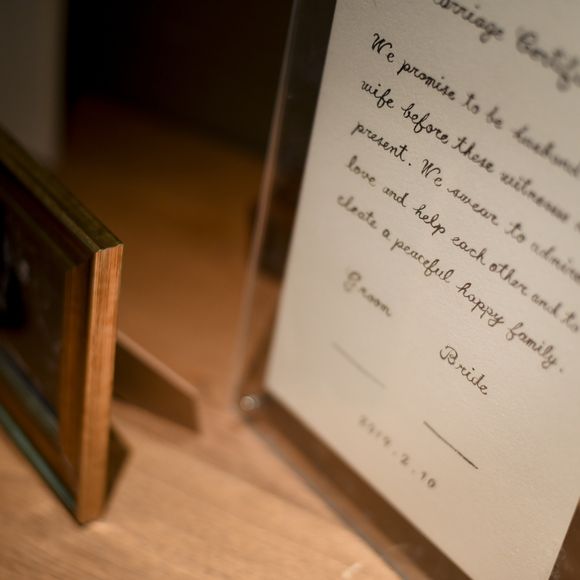 Marriage Certifi
We promise to be husband
wife before these witnesses
present. We swear to admire
love and help each other and to
cleate a peaceful happy family.
Groom
Bride
2019.2.10